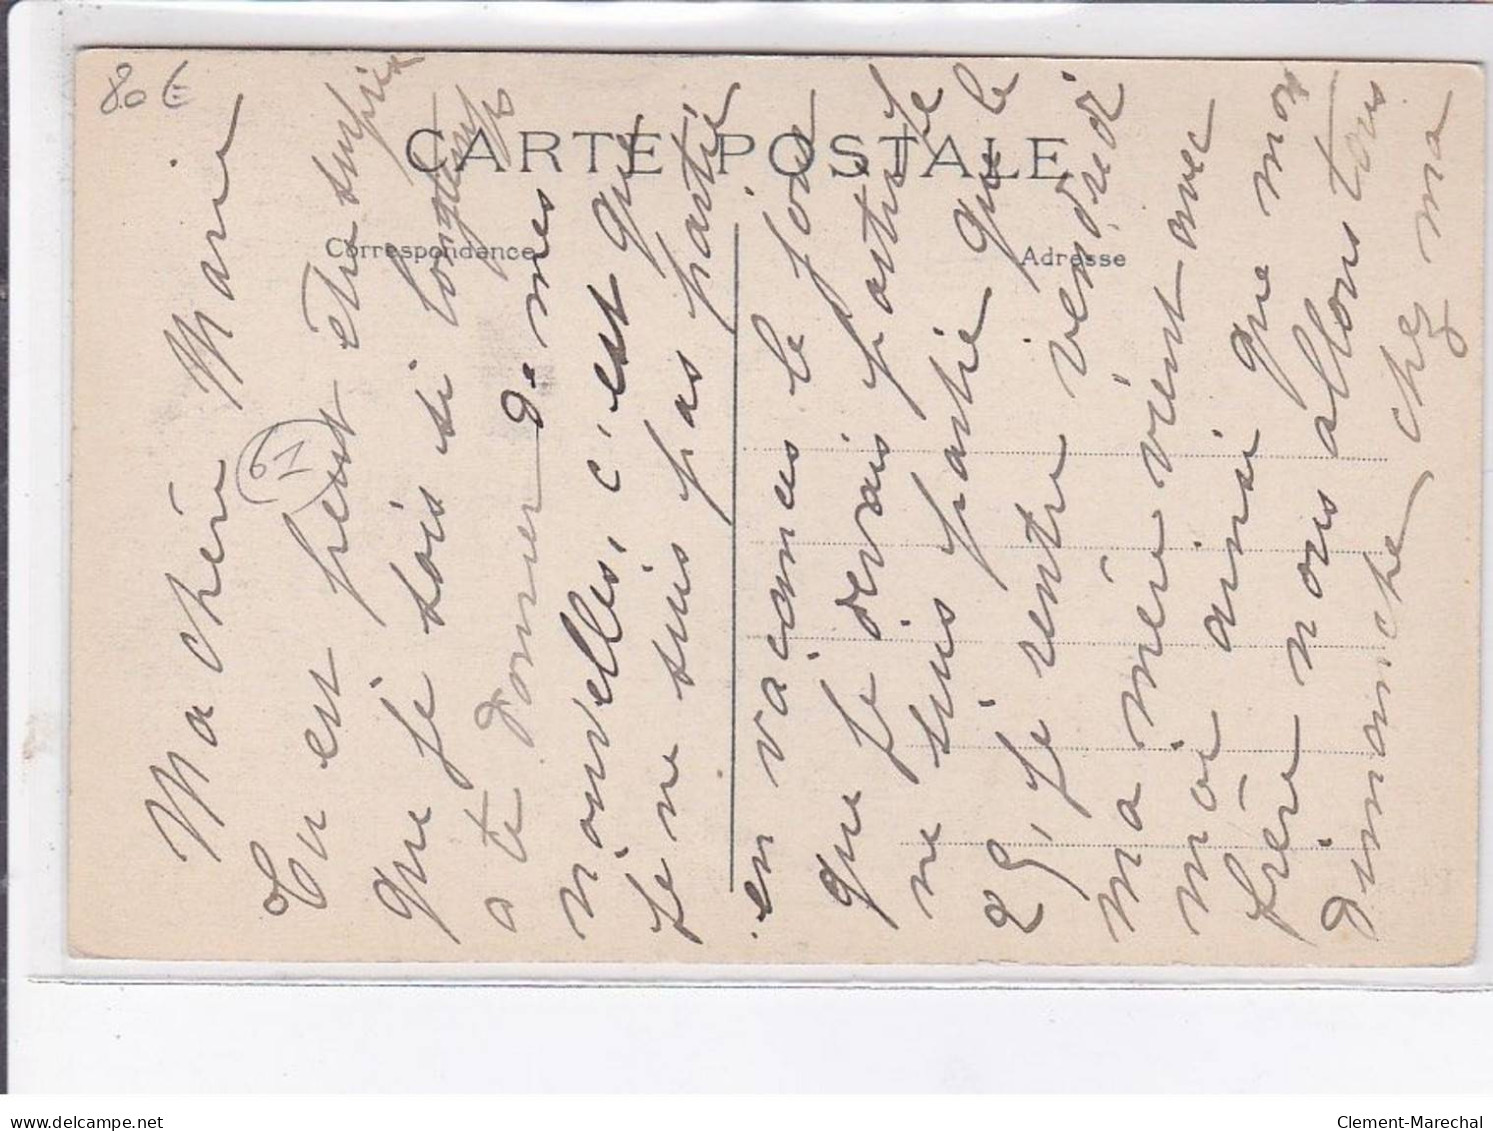 80 €
CARTE POSTALE
Correspondance
Adresse
61
Ma chère Marie
Tu es peut être surpris
que je sois si longtemps
a te donner de mes
nouvelles, c'est que
je ne suis pas partie
en vacances le jour
que je devais partir je
ne suis partie que le
25, je rentre vendredi
ma mère vient avec
moi ainsi que mon
frère nous allons tous
dimanche chez ma
delcampe.net
Clement-Marechal